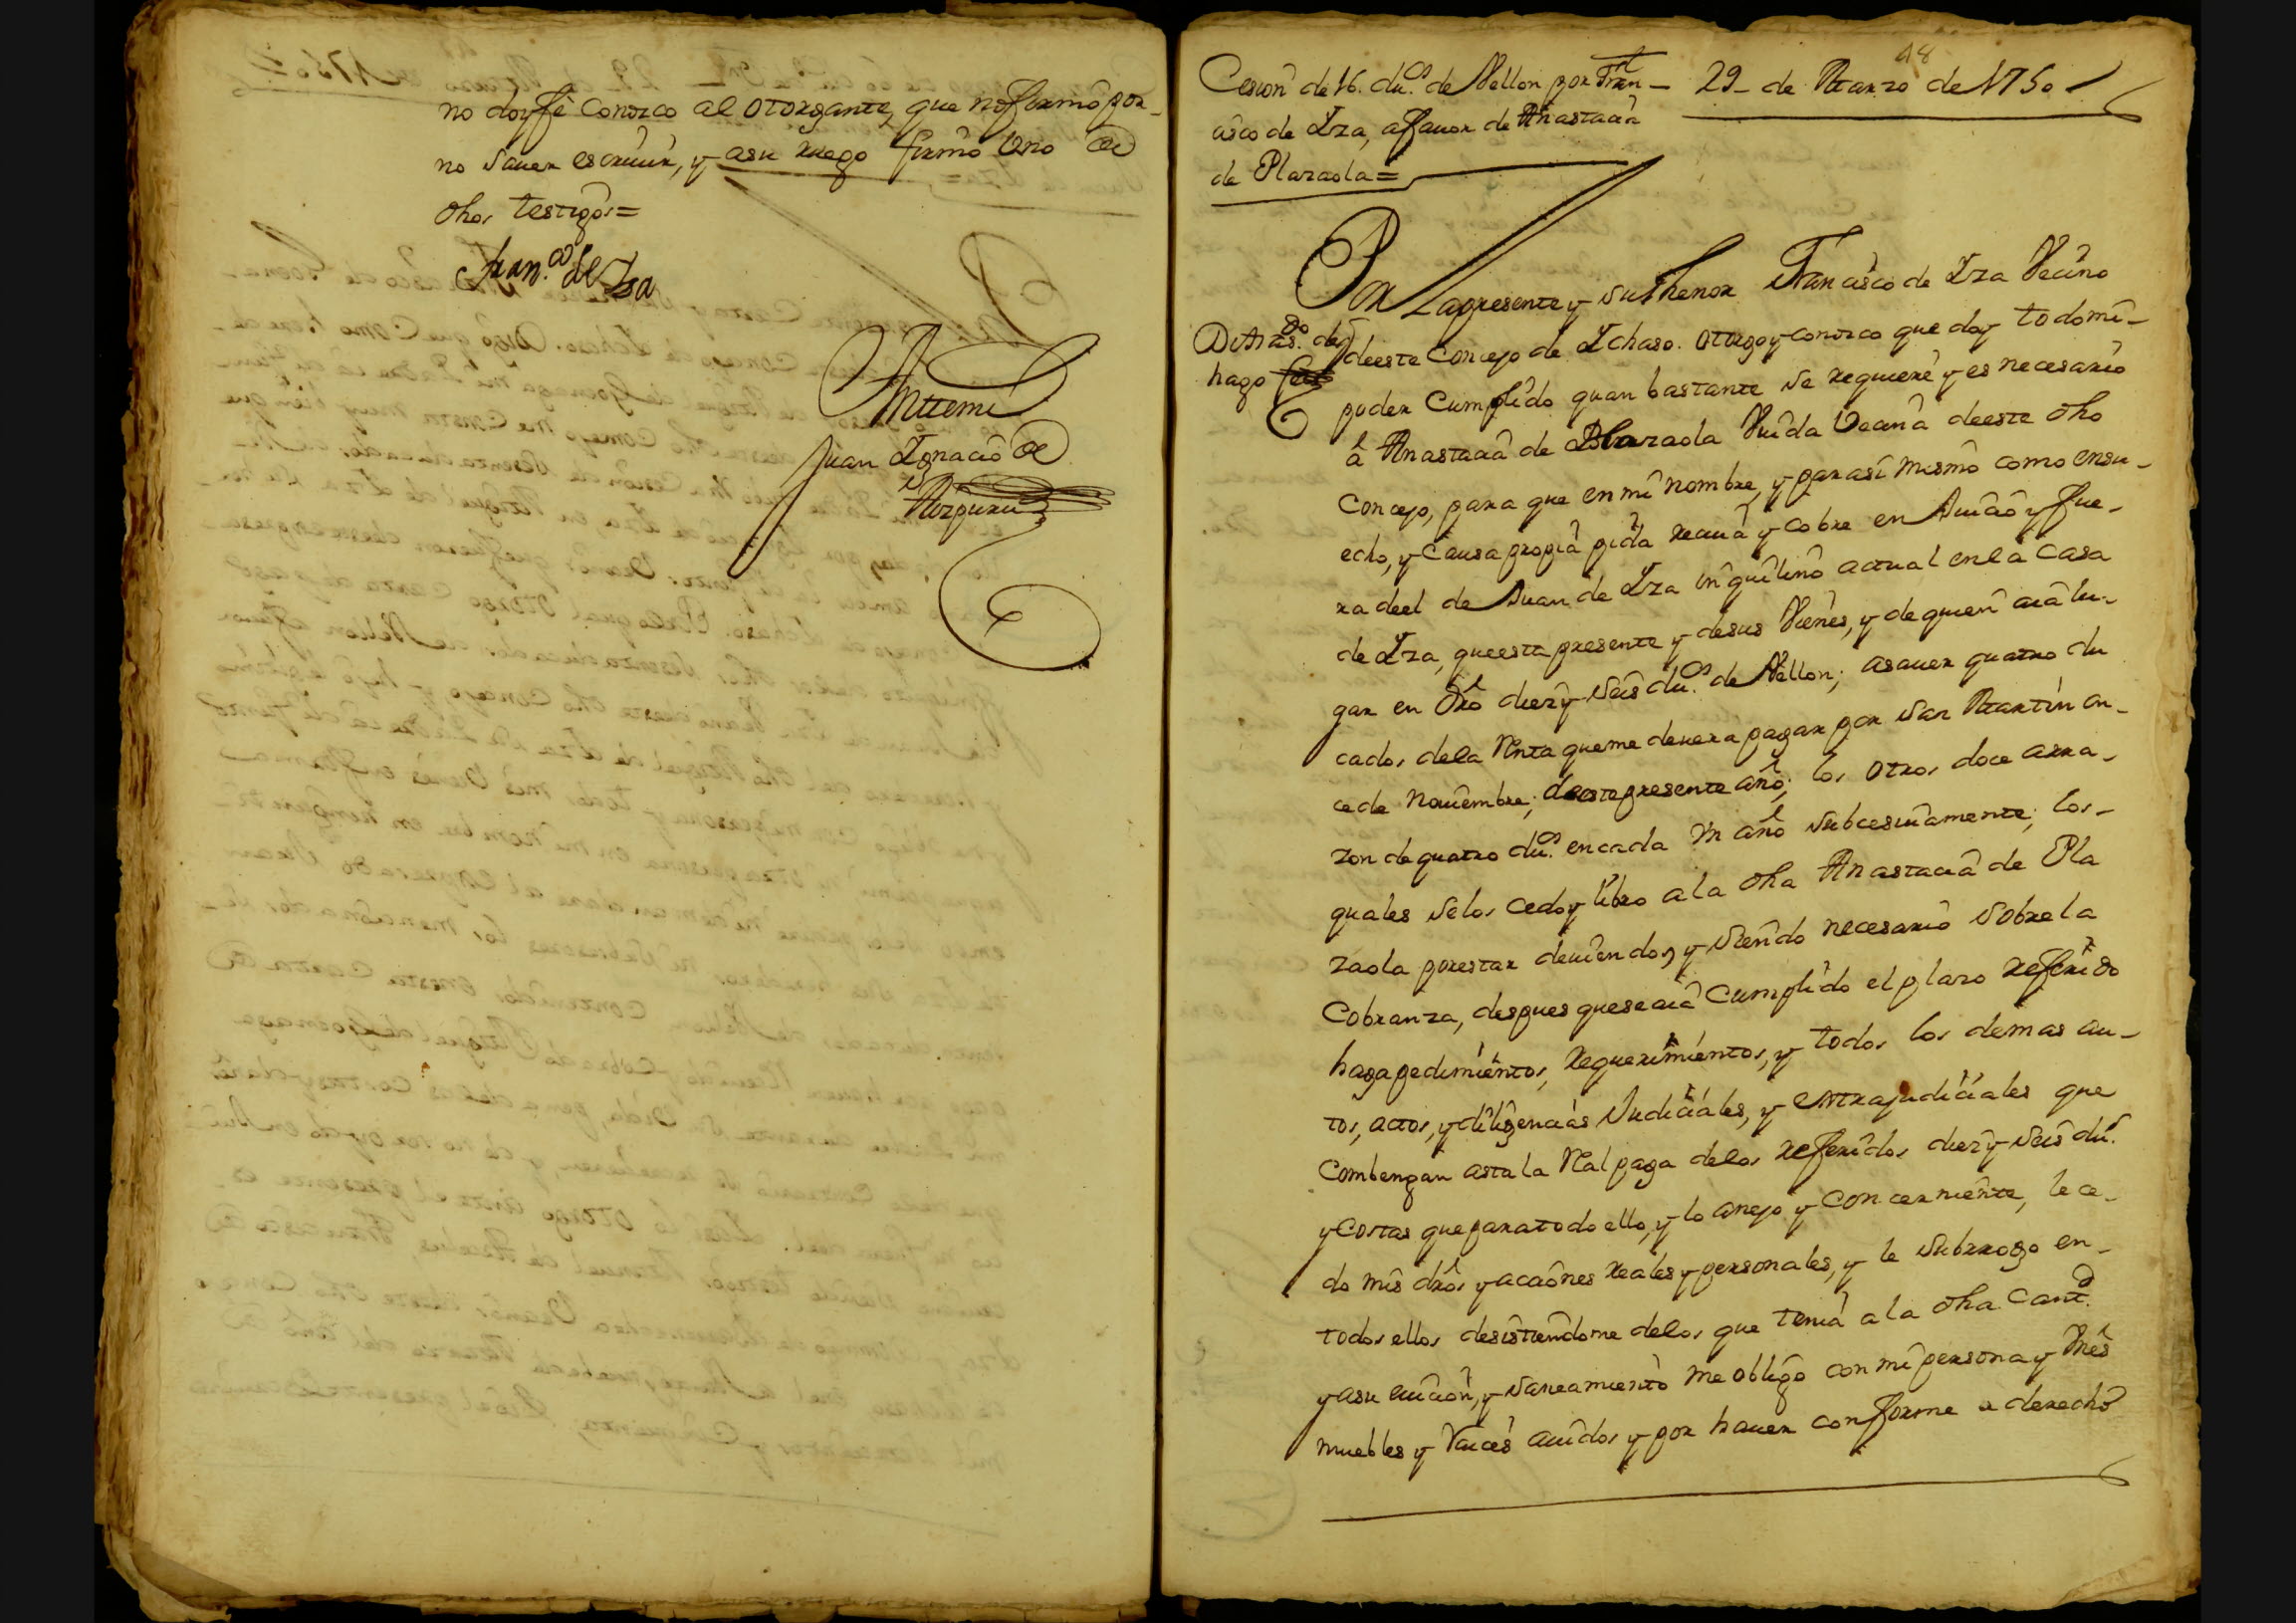 no doyffê conozco al otorgante, que noffirmô por
no sauer escriuir, y asu ruego firmô Vno de
dhos testigos=
Fran.co de Iza
Anttemi
Juan Ignacio de
Azpuru
48
Cesion de 16. du.s de Vellon por Fran- 29- de Marzo de 1750
cisco de Iza, affauor de Anastacia
de Plazaola=
Por Lapresente y suthenor Francisco de Iza Vecino
deeste Concejo de Ichaso. otorgo y conozco que doy todo mi-
poder Cumplido quan bastante se requiere y es necesario
â Anastacia de Plazaola Viuda Vecina deeste dho
Concejo, para que en mi nombre, y para si mismo como ensu-
echo, y Causa propia pida reciua y cobre en Juicio y fue-
ra deel de Juan de Iza inquilino actual en la Casa
de Iza, queesta presente y desus Vienes, y de quien aia lu-
gar en dro diez y seis du.s de Vellon; asauer quatro du
cados dela Renta queme deuera pagar por san Martin on-
ce de Nouiembre; deeste presente año; los otros doce arra-
zon de quatro du.s encada Vn año subcesiuamente; los-
quales selos cedo y libro a la dha Anastacia de Pla
zaola porestar deuiendo, y siendo necesario sobre la
Cobranza, despues queseaiâ Cumplido el plazo refferido
haga pedimientos, Requerimientos, y todos los demas au-
tos, actos, y diligencias Judiciales, y extrajudiciales que
Combengan asta la Real paga delos refferidos diez y seis du.s
y Costas que paratodo ello, y lo anejo y Concerniente, le ce-
do mis dros y acciones reales y personales, y le subrrogo en-
todos ellos desistiendome delos que tenia a la dha Cant.d
y asu euiccion, y saneamiento me obligo con mi persona y Vnes
muebles y Raices auidos y por hauer conforme a derecho